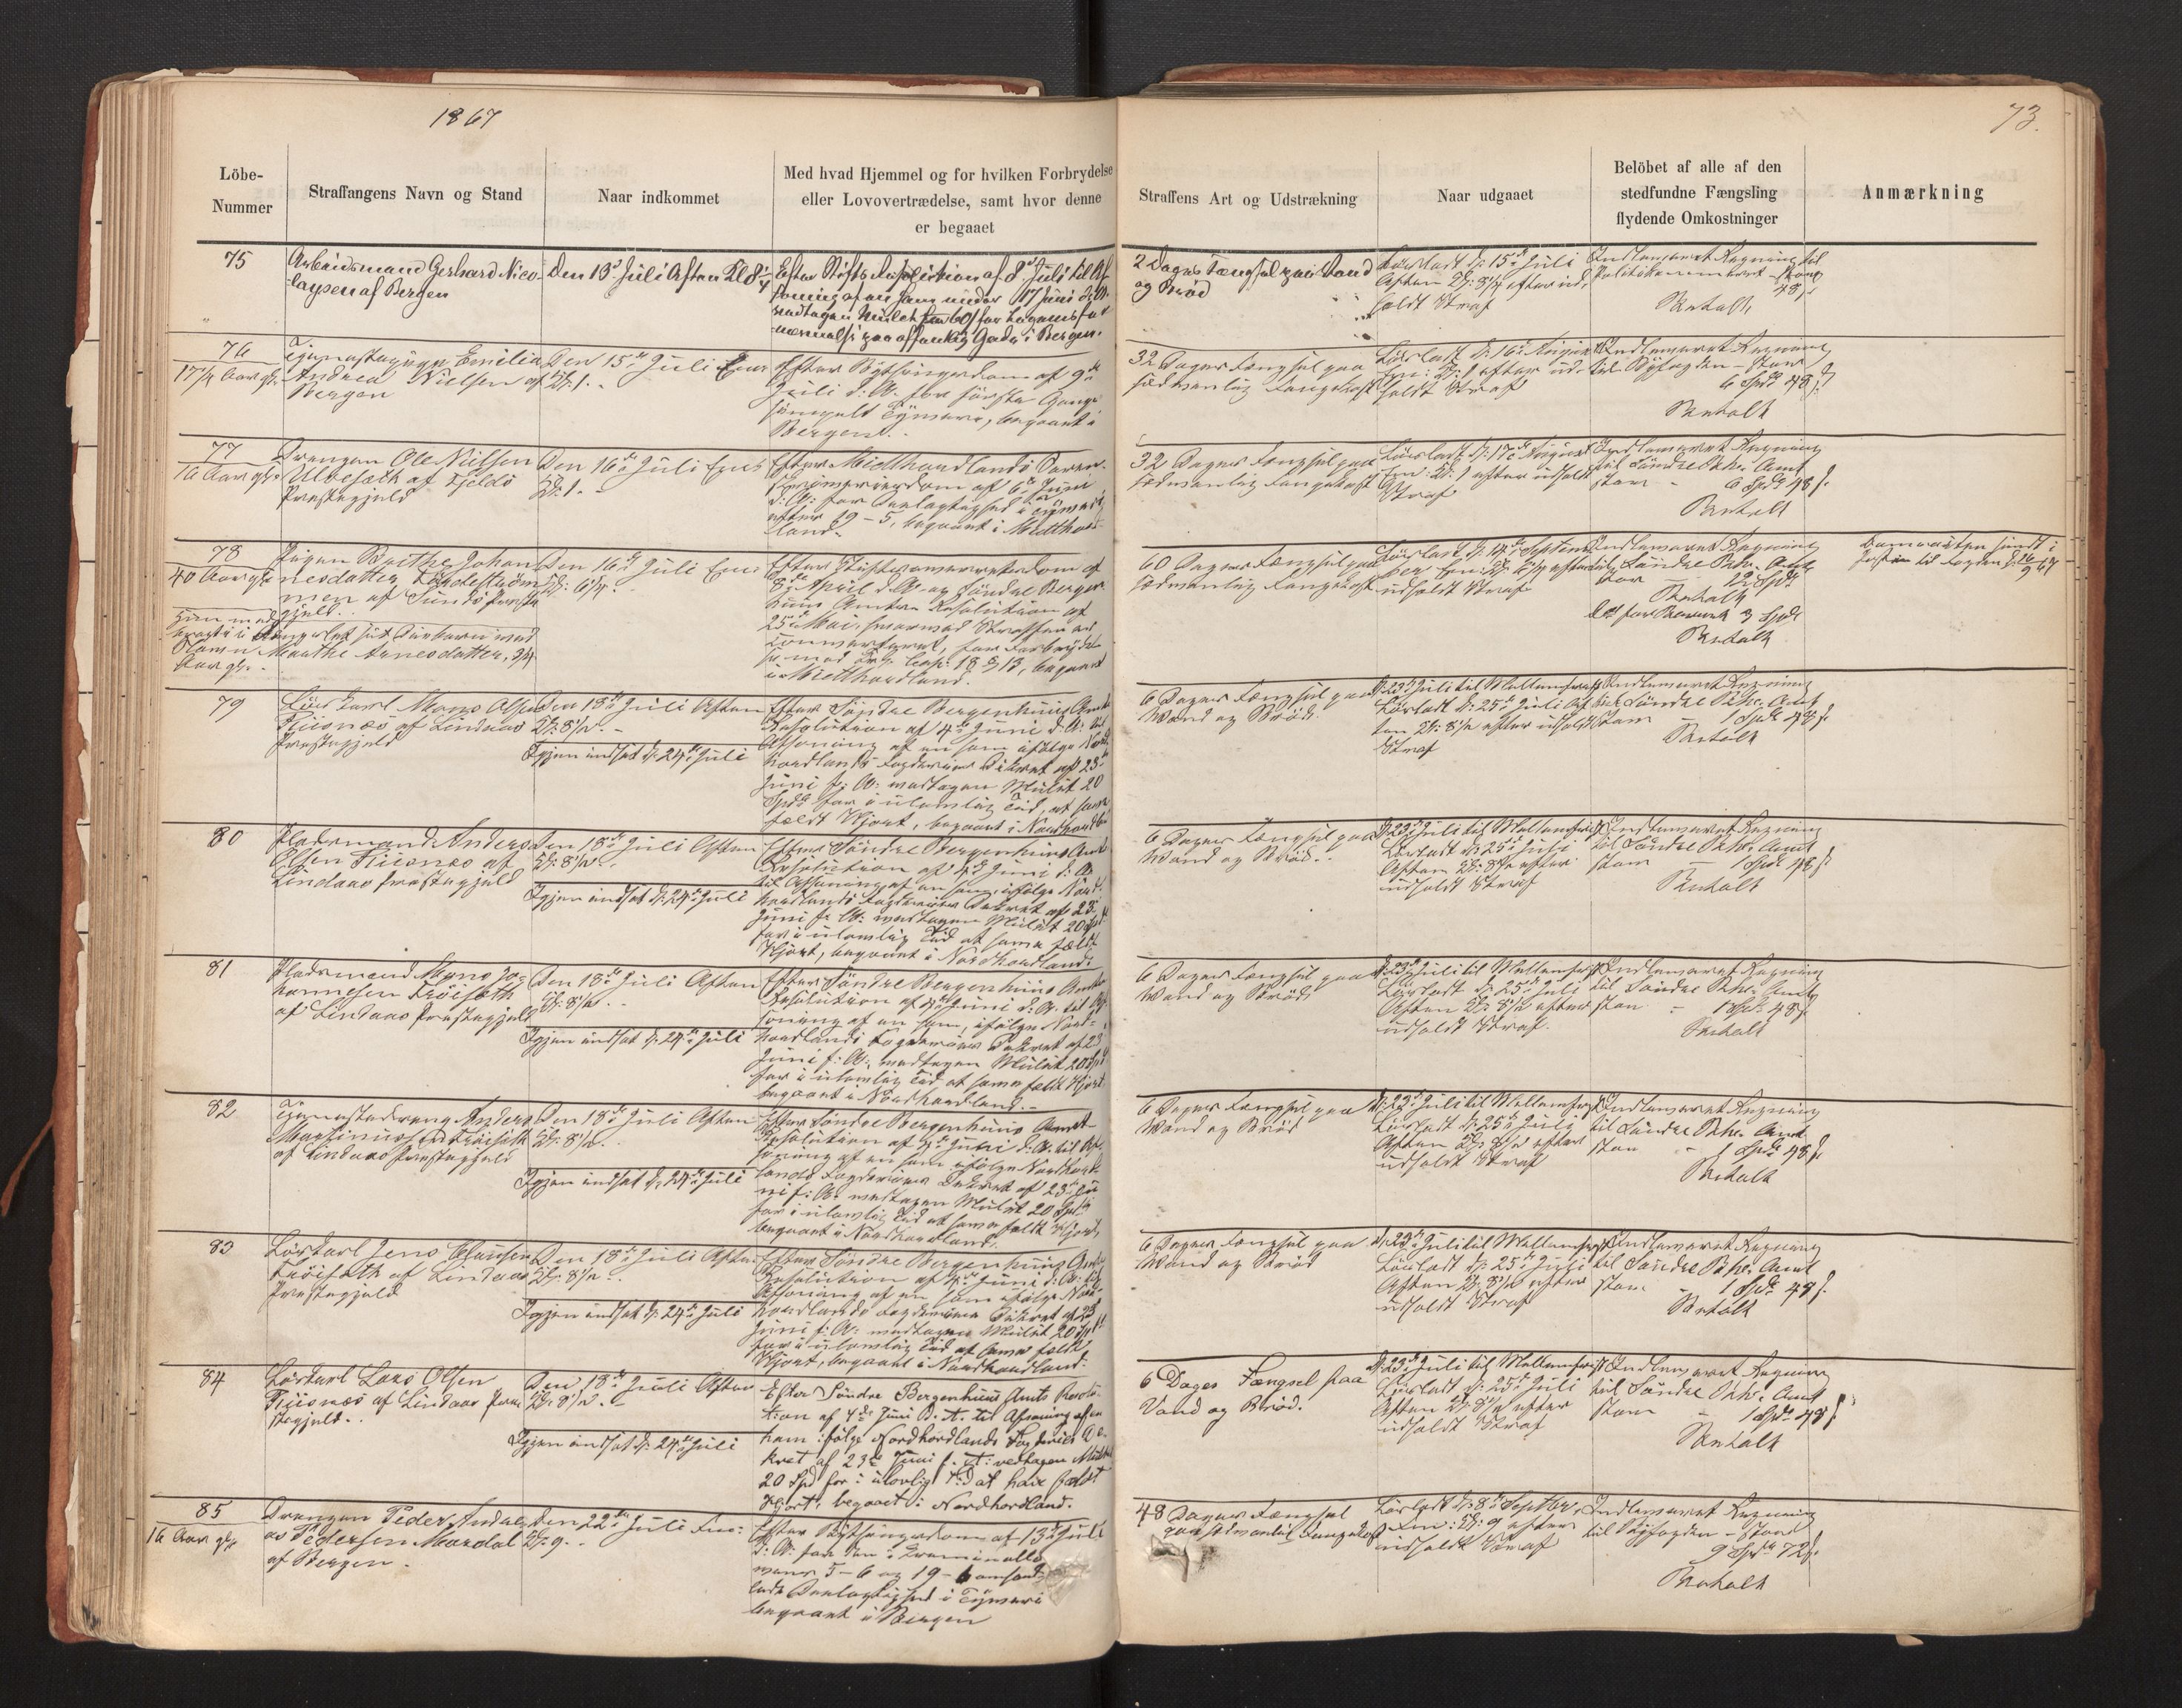 1867
73.
Löbe-
Nummer
Straffangens Navn og Stand
Naar indkommet
Med hvad Hjemmel og for hvilken Forbrydelse
eller Lovovertrædelse, samt hvor denne
er begaaet
Straffens Art og Udstrækning
Naar udgaaet
Belöbet af alle af den
stedfundne Fængsling
flydende Omkostninger
Anmærkning
75
Arbeidsmand Gerhard Nico-
laysen af Bergen
Den 13de Juli Aften Kl 8 1/4
Efter Stifts Resolution af 8de Juli til Af-
soning af en ham under 17 Juni d. A.
i Bergen.
2 Dages Fængsel paa Vand
og Bröd
Lösladt d. 15de Juli
Aften Kl: 8 1/4 efter ud-
holdt Straf
Indleveret Regning til
48 s.
Betalt
76
17 1/4 Aar gl.
Tjenestepige Emilie
Andrea Nielsen af
Bergen
Den 15de Juli Em:
Kl: 1.
Efter Bythingsdom af 9de
Juli d: A. for förste Gang
simpelt Tyveri, begaaet i
Bergen.
32 Dages Fængsel paa
sædvanlig Fangekost
Lösladt d. 16de August
Em: Kl: 1 efter ud-
holdt Straf
Indleveret Regning
til Byfogden - stor
6 Spd 48 s.
Betalt
77
16 Aar gl.
Drengen Ole Nielsen
af Fjelds
Præstegjeld
Den 16de Juli Em:
Kl: 1.
Efter Midthordlands Soren-
dom af 6te Juni
d: A: for Deelagtighed i Tyveri
efter 19-5, begaaet i Midthord-
land.
32 Dages Fængsel paa
sædvanlig Fangekost
Lösladt d. 17de August
Em: Kl: 1 efter udholdt
Straf
Indleveret Regning
til Söndre Bhs. Amt
stor - 6 Spd 48 s.
Betalt
78
40 Aar gl.
Pigen Brithe Johan-
nesdatter
af Sunds Præste-
gjeld.
Marthe Arnesdatter, 3/4
Aar gl.
Den 16de Juli Em:
Kl: 6 1/4.
Efter Stiftsoverretsdom af
8de April d. A. og Söndre Bergen-
huus Amts Resolution af
25de Mai, hvorved Straffen er
converteret, for Forbrydel-
se mod Crl. Cap: 18 § 13, begaaet
i Midthordland.
60 Dages Fængsel paa
sædvanlig Fangekost
Lösladt d. 14de Septem-
ber Em: Kl: 6 1/4 efter
udholdt Straf
Indleveret Regning
til Söndre Bhs. Amt
Betalt
for Barnet 3 Spd
Betalt
sendt i
til Fogden d. 16/9 67
79
Löskarl Mons Olsen
Riisnæs af Lindaas
Præstegjeld
Den 18de Juli Aften
Kl: 8 1/2.
Igjen indsat d. 24de Juli
Efter Söndre Bergenhuus Amts
Resolution af 4de Juni d. A. til
Afsoning af en ham ifölge Nord-
hordlands Fogderies Dekret af 23de
Juni f. A: vedtagen Mulct 20
Spd for i ulovlig Tid, at have
fældt Hjort, begaaet i Nordhordland
6 Dages Fængsel paa
Vand og Bröd.
D. 23de Juli til Mellemfrist
Lösladt d. 25de Juli Af-
ten Kl: 8 1/2 efter udholdt
Straf
Indleveret Regning
til Söndre Bhs. Amt
stor - 1 Spd 48 s.
Betalt
80
Pladsmand Anders
Olsen Riisnæs af
Lindaas Præstegjeld
Den 18de Juli Aften
Kl: 8 1/2.
Igjen indsat d. 24de Juli
Efter Söndre Bergenhuus Amts
Resolution af 4de Juni d: A.
til Afsoning af en ham, ifölge Nord-
hordlands Fogderies Dekret af 23de
Juni f: A: vedtagen Mulct 20 Spd
for i ulovlig Tid at have fældt
Hjort, begaaet i Nordhordland.
6 Dages Fængsel paa
Vand og Bröd.
D. 23de Juli til Mellemfrist
Lösladt d. 25de Juli
Aften Kl: 8 1/2 efter
udholdt Straf
Indleveret Regning
til Söndre Bhs. Amt
stor - 1 Spd 48 s.
Betalt
81
Pladsmand Mons Jo-
hannesen Fröiseth
af Lindaas Præstegjeld
Den 18de Juli Aften
Kl: 8 1/2.
Igjen indsat d. 24de Juli
Efter Söndre Bergenhuus Amts
Resolution af 4de Juni d: A. til Af-
soning af en ham, ifölge Nord-
hordlands Fogderies Dekret af 23
Juni f: A: vedtagen Mulct 20 Spd
for i ulovlig Tid at have fældt Hjort
begaaet i Nordhordland.
6 Dages Fængsel paa
Vand og Bröd
D. 23de Juli til Mellemfrist
Lösladt d. 25de Juli
Aften Kl: 8 1/2 efter
udholdt Straf.
Indleveret Regning
til Söndre Bhs. Amt
stor - 1 Spd 48 s.
Betalt
82
Tjenestedreng Anders
Martinussen Fröiseth
af Lindaas Præstegjeld
Den 18de Juli Aften
Kl: 8 1/2.
Igjen indsat d. 24de Juli
Efter Söndre Bergenhuus Amts
Resolution af 4de Juni d: A. til Af-
soning af en ham ifölge Nordhord-
lands Fogderies Dekret af 23de Ju-
ni f: A: vedtagen Mulct 20 Spd
for i ulovlig Tid at have fældt Hjort,
begaaet i Nordhordland.
6 Dages Fængsel paa
Vand og Bröd
D. 23de Juli til Mellemfrist
Lösladt d. 25de Juli
Aften Kl: 8 1/2 efter
udholdt Straf
Indleveret Regning
til Söndre Bhs. Amt
stor - 1 Spd 48 s.
Betalt
83
Löskarl Jens Clausen
Fröiseth af Lindaas
Præstegjeld
Den 18de Juli Aften
Kl: 8 1/2.
Igjen indsat d. 24de Juli
Efter Söndre Bergenhuus Amts
Resolution af 4de Juni d: A: til
Afsoning af en ham ifölge Nord-
hordlands Fogderies Dekret af 23de
Juni f: A: vedtagen Mulct 20 Spd
for i ulovlig Tid at have fældt
Hjort, begaaet i Nordhordland.
6 Dages Fængsel paa
Vand og Bröd
D. 23de Juli til Mellemfrist
Lösladt d. 25de Juli
Aften Kl: 8 1/2 efter
udholdt Straf
Indleveret Regning
til Söndre Bhs. Amt
stor - 1 Spd 48 s.
Betalt
84
Löskarl Lars Olsen
Riisnæs af Lindaas Præ-
stegjeld.
Den 18de Juli Aften
Kl: 8 1/2.
Igjen indsat d. 24de Juli
Efter Söndre Bergenhuus Amts Resolu-
tion af 4de Juni d. A. til Afsoning af en
ham ifölge Nordhordlands Fogderies De-
kret af 23de Juni f. A: vedtagen Mulct
20 Spd for i ulovlig Tid at have fældt
Hjort, begaaet i Nordhordland.
6 Dages Fængsel paa
Vand og Bröd.
D. 23de Juli til Mellemfrist
Lösladt d. 25de Juli
Aften Kl: 8 1/2 efter
udholdt Straf
Indleveret Regning
til Söndre Bhs. Amt
stor - 1 Spd 48 s.
Betalt
85
16 Aar gl.
Drengen Peder Andre-
as Pedersen Mardal
af Bergen.
Den 22de Juli Em:
Kl: 9.
Efter Bythingsdom af 13de Juli
d: A: for den i Criminallo-
vens 5-6 og 19-6 omhand-
lede Deelagtighed i Tyveri
begaaet i Bergen
48 Dages Fængsel
paa sædvanlig Fangekost
Lösladt d. 8de Septbr.
Em: Kl: 9 efter
udholdt Straf
Indleveret Regning
til Byfogden - stor
9 Spd 72 s.
Betalt